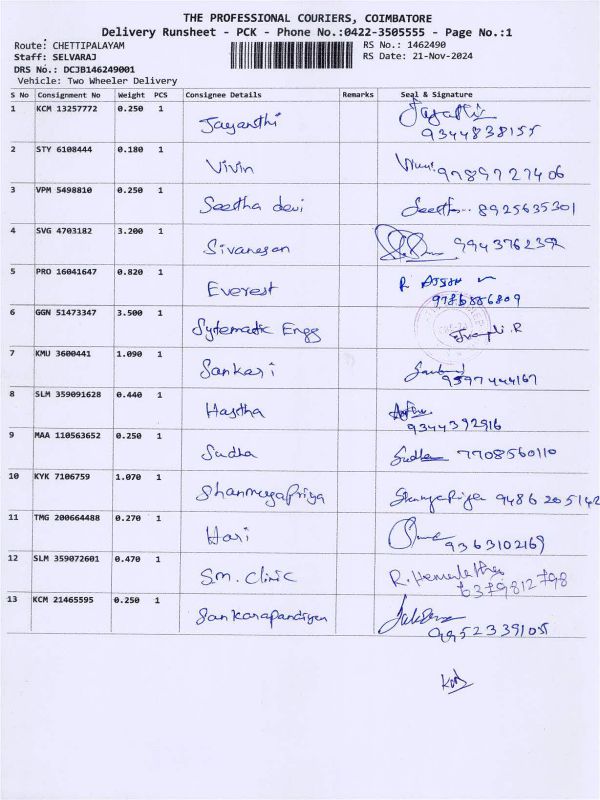 THE PROFESSIONAL COURIERS, COIMBATORE
Delivery Runsheet - PCK - Phone No.:0422-3505555 - Page No.:1
Route: CHETTIPALAYAM RS No.: 1462490
Staff: SELVARAJ RS Date: 21-Nov-2024
DRS No.: DCJB146249001
Vehicle: Two Wheeler Delivery
S No Consignment No Weight PCS Consignee Details Remarks Seal & Signature
1 KCM 13257772 0.250 1 Jayanthi
9344838155
2 STY 6108444 0.180 1 Vivin 9789727406
3 VPM 5498810 0.250 1 Seetha devi 8925635301
4 SVG 4703182 3.200 1 Sivanesan 9943762392
5 PRO 16041647 0.820 1 Everest
9786886809
6 GGN 51473347 3.500 1 Sytematic Engg
7 KMU 3600441 1.090 1 Sankari
9597444167
8 SLM 359091628 0.440 1 Hastha
9344392916
9 MAA 110563652 0.250 1 Sudha 7708560110
10 KYK 7106759 1.070 1 Shanmugapriya 9486205142
11 TMG 200664488 0.270 1 Hari
9363102169
12 SLM 359072601 0.470 1 S.m. clinic R.
6379812798
13 KCM 21465595 0.250 1 Sankarapandiyan
9952339105